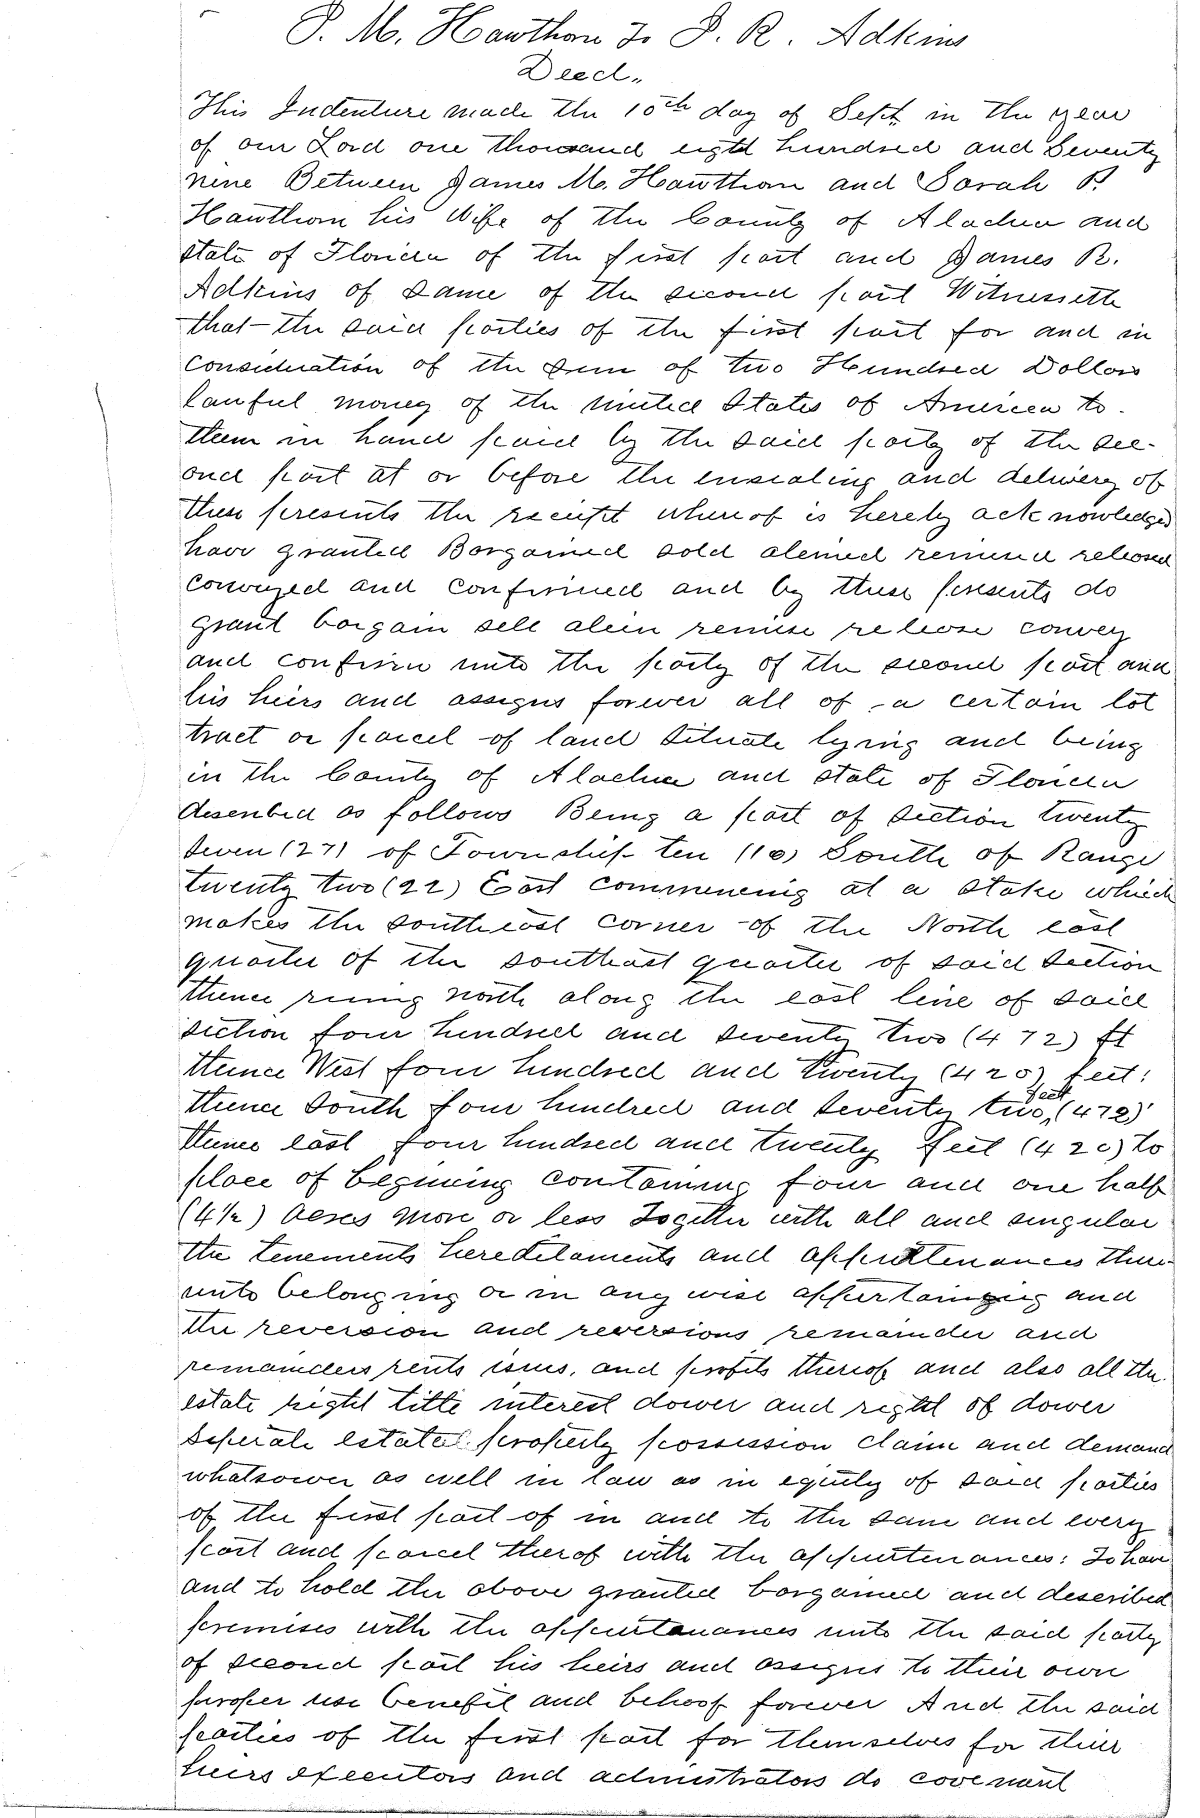 J. M. Hawthorn To J. R. Adkins
Deed.
This Indenture made the 10th day of Sept in the year
of our Lord one thousand eight hundred and Seventy
nine Between James M. Hawthorn and Sarah P.
Hawthorn his Wife of the County of Alachua and
state of Florida of the first part and James R.
Adkins of same of the second part Witnesseth
that the said parties of the first part for and in
consideration of the sum of two Hundred Dollars
lawful money of the united States of America to
them in hand paid by the said party of the sec-
ond part at or before the ensealing and delivery of
these presents the receipt whereof is hereby acknowledged
have granted Bargained sold aleined remised released
conveyed and confirmed and by these presents do
grant bargain sell alein remise release convey
and confirm unto the party of the second part and
his heirs and assigns forever all of a certain lot
tract or parcel of land situate lying and being
in the County of Alachua and state of Florida
described as follows Being a part of Section twenty
seven (27) of Township ten (10) South of Range
twenty two (22) East commencing at a stake which
makes the southeast corner of the North east
quarter of the southeast quarter of said Section
thence runing north along the east line of said
section four hundred and seventy two (472) ft
thence West four hundred and twenty (420) feet:
thence South four hundred and seventy two feet (472)
thence east four hundred and twenty feet (420) to
place of begining containing four and one half
(4 1/2) acres more or less Together with all and singular
the tenements hereditaments and appurtenances there-
unto belonging or in any wise appertaining and
the reversion and reversions remainder and
remainders rents issues, and profits thereof and also all the
estate right title interest dower and right of dower
seperate estate property possession claim and demand
whatsoever as well in law as in equity of said parties
of the first part of in and to the same and every
part and parcel therof with the appurtenances: To have
and to hold the above granted bargained and described
premises with the appurtanances unto the said party
of second part his heirs and assigns to their own
proper use benefit and behoof forever And the said
parties of the first part for themselves for their
heirs executors and administrators do covenant